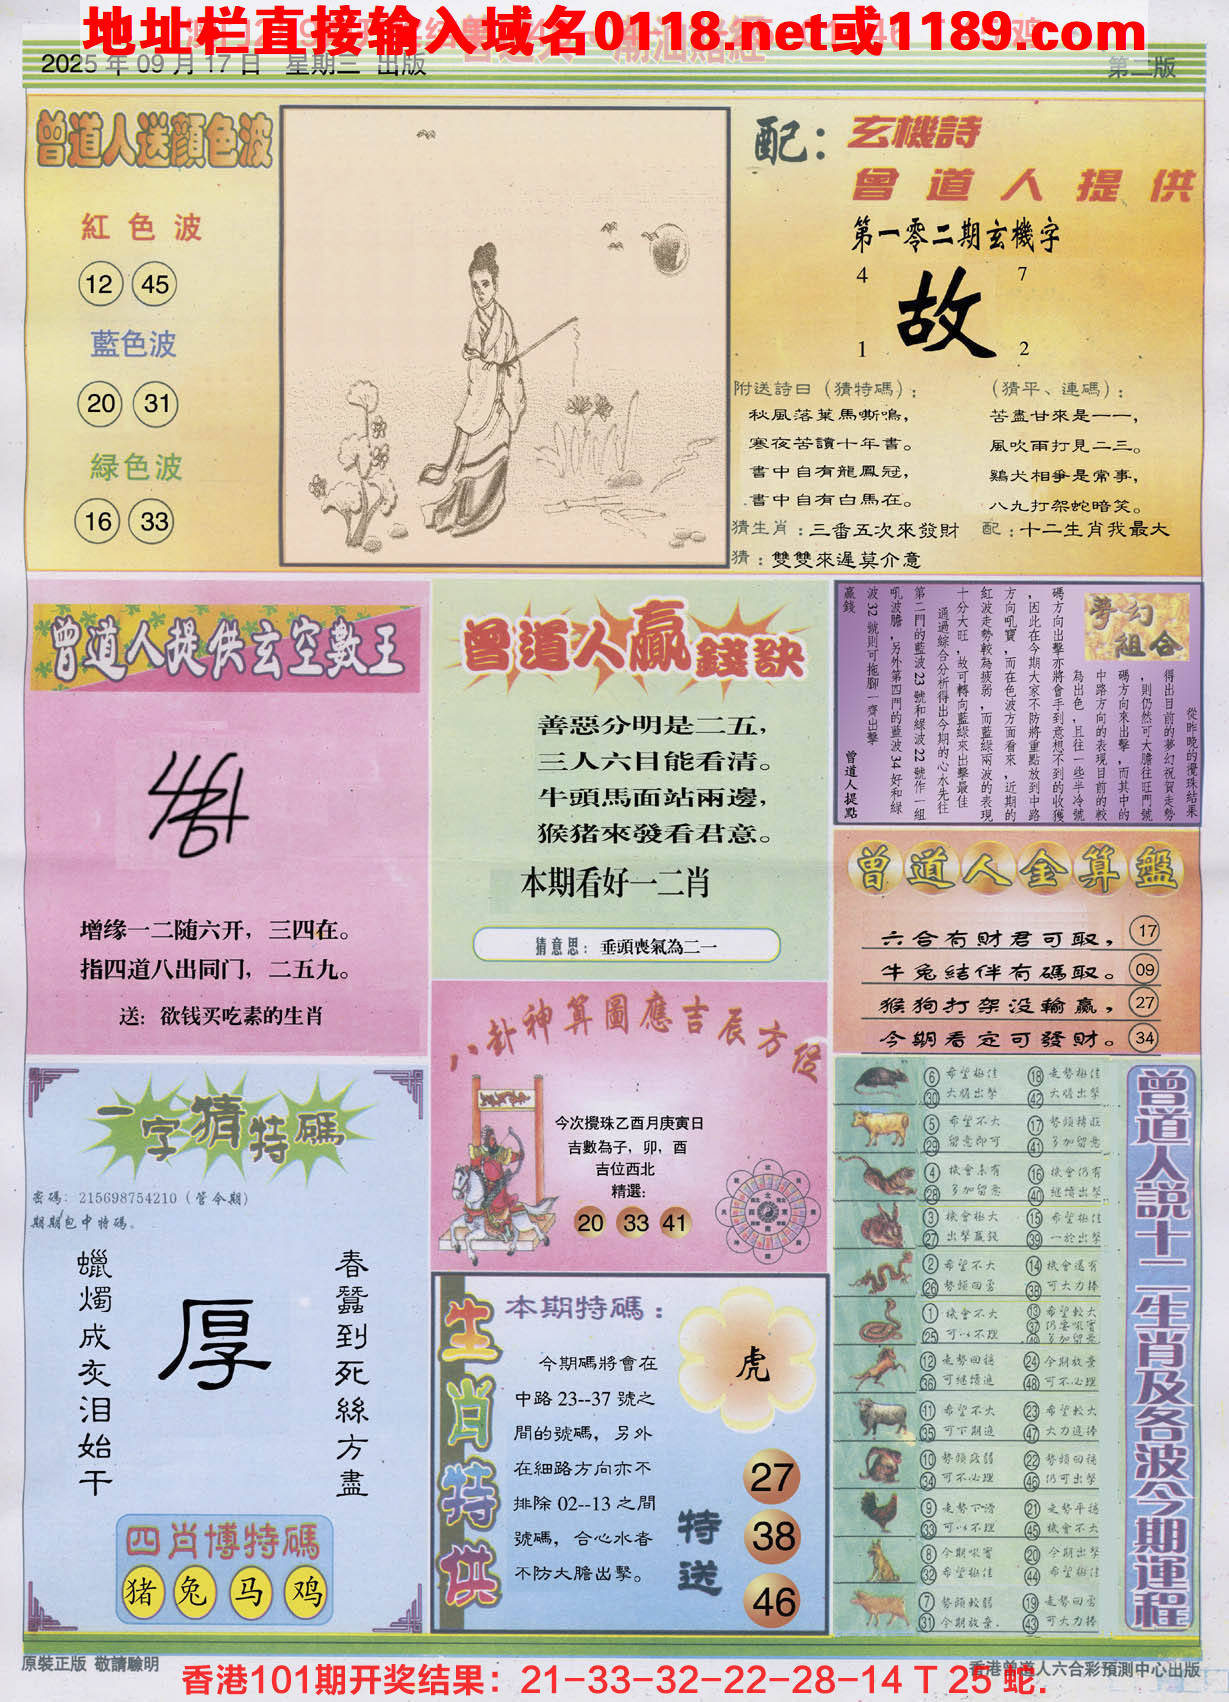 地址栏直接输入域名0118.net或1189.com
2025年09月17日 星期三 出版
第二版
曾道人送顔色波
紅色波
12 45
藍色波
20 31
緑色波
16 33
配：
玄機詩
曾道人提供
第一零二期玄機字
4 7
故
1 2
附送詩曰（猜特碼）：
秋風落葉馬嘶鳴，
寒夜苦讀十年書。
書中自有龍鳳冠，
書中自有白馬在。
（猜平、連碼）：
苦盡甘來是一一，
風吹雨打見二三。
鷄犬相爭是常事，
八九打架蛇暗笑。
猜生肖：三番五次來發財
配：十二生肖我最大
猜：雙雙來遲莫介意
曾道人提供玄空數王
增缘一二随六开，三四在。
指四道八出同门，二五九。
送：欲钱买吃素的生肖
曾道人贏錢訣
善惡分明是二五，
三人六目能看清。
牛頭馬面站兩邊，
猴猪來發看君意。
本期看好一二肖
猜意思：垂頭喪氣為二一
夢幻組合
從昨晚的攪珠結果
得出目前的夢幻祝賀走勢
，則仍然可大膽往旺門號
碼方向來出擊，而其中的
中路方向的表現目前的較
為出色，且往一些半冷號
碼方向出擊亦將會手到意想不到的收獲
，因此在今期大家不防將重點放到中路
方向吼寶，而在色波方面看來，近期的
紅波走勢較為疲弱，而藍綠兩波的表現
十分大旺，故可轉向藍綠來出擊最佳
通過綜合分析得出今期的心水先往
第二門的藍波23號和綠波22號作一組
吼波膽，另外第四門的藍波34好和綠
波32號則可拖腳一齊出擊
贏錢
曾道人提點
曾道人金算盤
六合有財君可取， 17
牛兔結伴有碼取。 09
猴狗打架没輸贏， 27
今期看定可發財。 34
一字猜特碼
密碼：215698754210（管今期）
期期包中特碼。
春蠶到死絲方盡
厚
蠟燭成灰泪始干
四肖博特碼
猪 兔 马 鸡
八卦神算圖應吉辰方位
今次攪珠乙酉月庚寅日
吉數為子，卯，酉
吉位西北
精選：
20 33 41
生肖特供
本期特碼：
今期碼將會在
中路23--37號之
間的號碼，另外
在細路方向亦不
排除02--13之間
號碼，合心水者
不防大膽出擊。
虎
特送
27
38
46
曾道人說十二生肖及各波今期運程
6 希望極佳 18 走勢極佳
30 大膽出擊 42 大膽出擊
5 希望不大 17 勢頭轉旺
29 留意即可 41 多加留意
4 機會未有 16 機會仍有
28 多加留意 40 繼續出擊
3 機會極大 15 希望極佳
27 出擊贏錢 39 一於出擊
2 希望不大 14 機會還有
26 勢頭回落 38 可大力捧
1 機會不大 13 希望較大
25 可以不理 37 仍要吼實
12 走勢回穩 24 今期放棄
36 可繼續追 48 可不必理
11 希望不大 23 希望較大
35 可下期追 47 大力追捧
10 勢頭疲弱 22 勢頭回穩
34 可不必理 46 仍可出擊
9 走勢下滑 21 走勢平穩
33 可以不理 45 機會不大
8 今期吼實 20 今期出擊
32 希望極佳 44 希望極佳
7 勢頭較弱 19 走勢回落
31 今期放棄. 43 可大力捧
原裝正版 敬請驗明
香港曾道人六合彩預測中心出版
香港101期开奖结果：21-33-32-22-28-14 T 25 蛇.